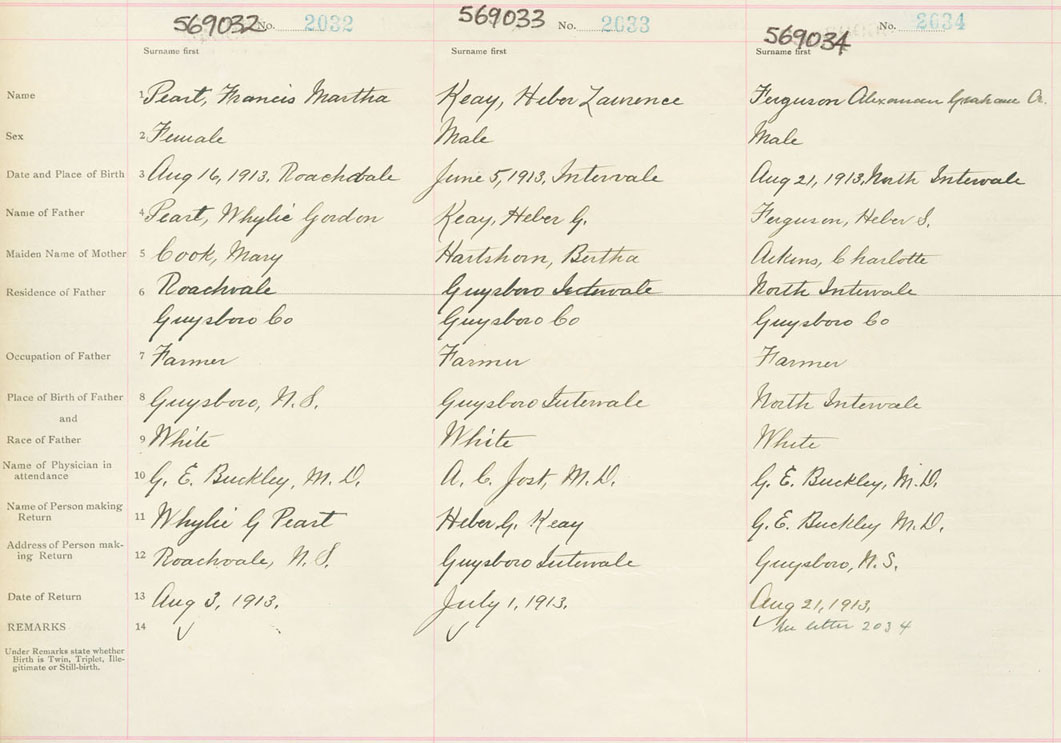 569032 No. 2032 569033 No. 2033 569034 No. 2034
Surname first Surname first Surname first
Name 1 Peart, Francis Martha Keay, Heber Lawrence Ferguson Alexander Graham
Sex 2 Female Male Male
Date and Place of Birth 3 Aug 16, 1913, Roachdale June 5, 1913, Intervale Aug 21, 1913, North Intervale
Name of Father 4 Peart, Whylie Gordon Keay, Heber G. Ferguson, Heber S.
Maiden Name of Mother 5 Cook, Mary Hartshorn, Bertha Aikins, Charlotte
Residence of Father 6 Roachvale Guysboro Intervale North Intervale
Guysboro Co Guysboro Co Guysboro Co
Occupation of Father 7 Farmer Farmer Farmer
Place of Birth of Father 8 Guysboro, N.S. Guysboro Intervale North Intervale
and
Race of Father 9 White White White
Name of Physician in
attendance 10 G. E. Buckley, M.D. A. C. Jost, M.D. G. E. Buckley, M.D.
Name of Person making
Return 11 Whylie G Peart Heber G. Keay G. E. Buckley M.D.
Address of Person mak-
ing Return 12 Roachvale, N.S. Guysboro Intervale Guysboro, N.S.
Date of Return 13 Aug 3, 1913. July 1, 1913. Aug 21, 1913.
REMARKS 14 letter 2034
Under Remarks state whether
Birth is Twin, Triplet, Ille-
gitimate or Still-birth.